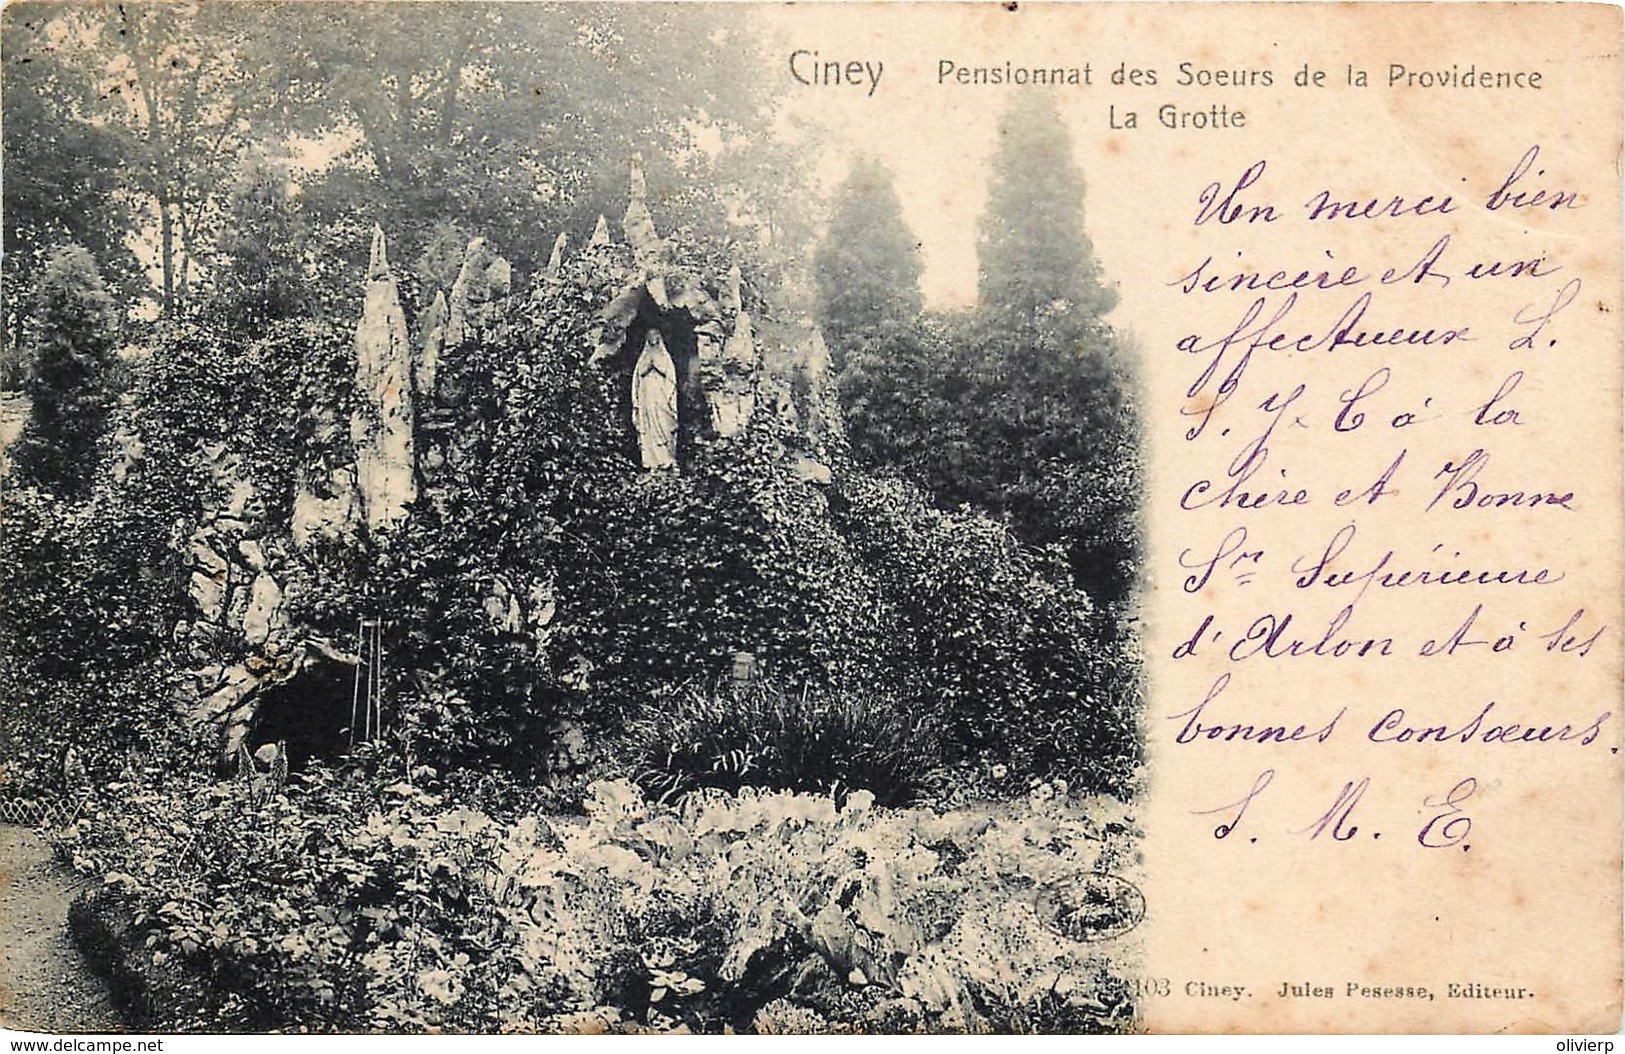 Ciney Pensionnat des Soeurs de la Providence
La Grotte
Un merci bien
sincère et un
affectueux L.
S. J. C à la
chère et Bonne
Sr Supérieure
d'Arlon et à ses
bonnes consœurs.
S. M. E.
103 Ciney. Jules Pesesse, Editeur.
www.delcampe.net
olivierp